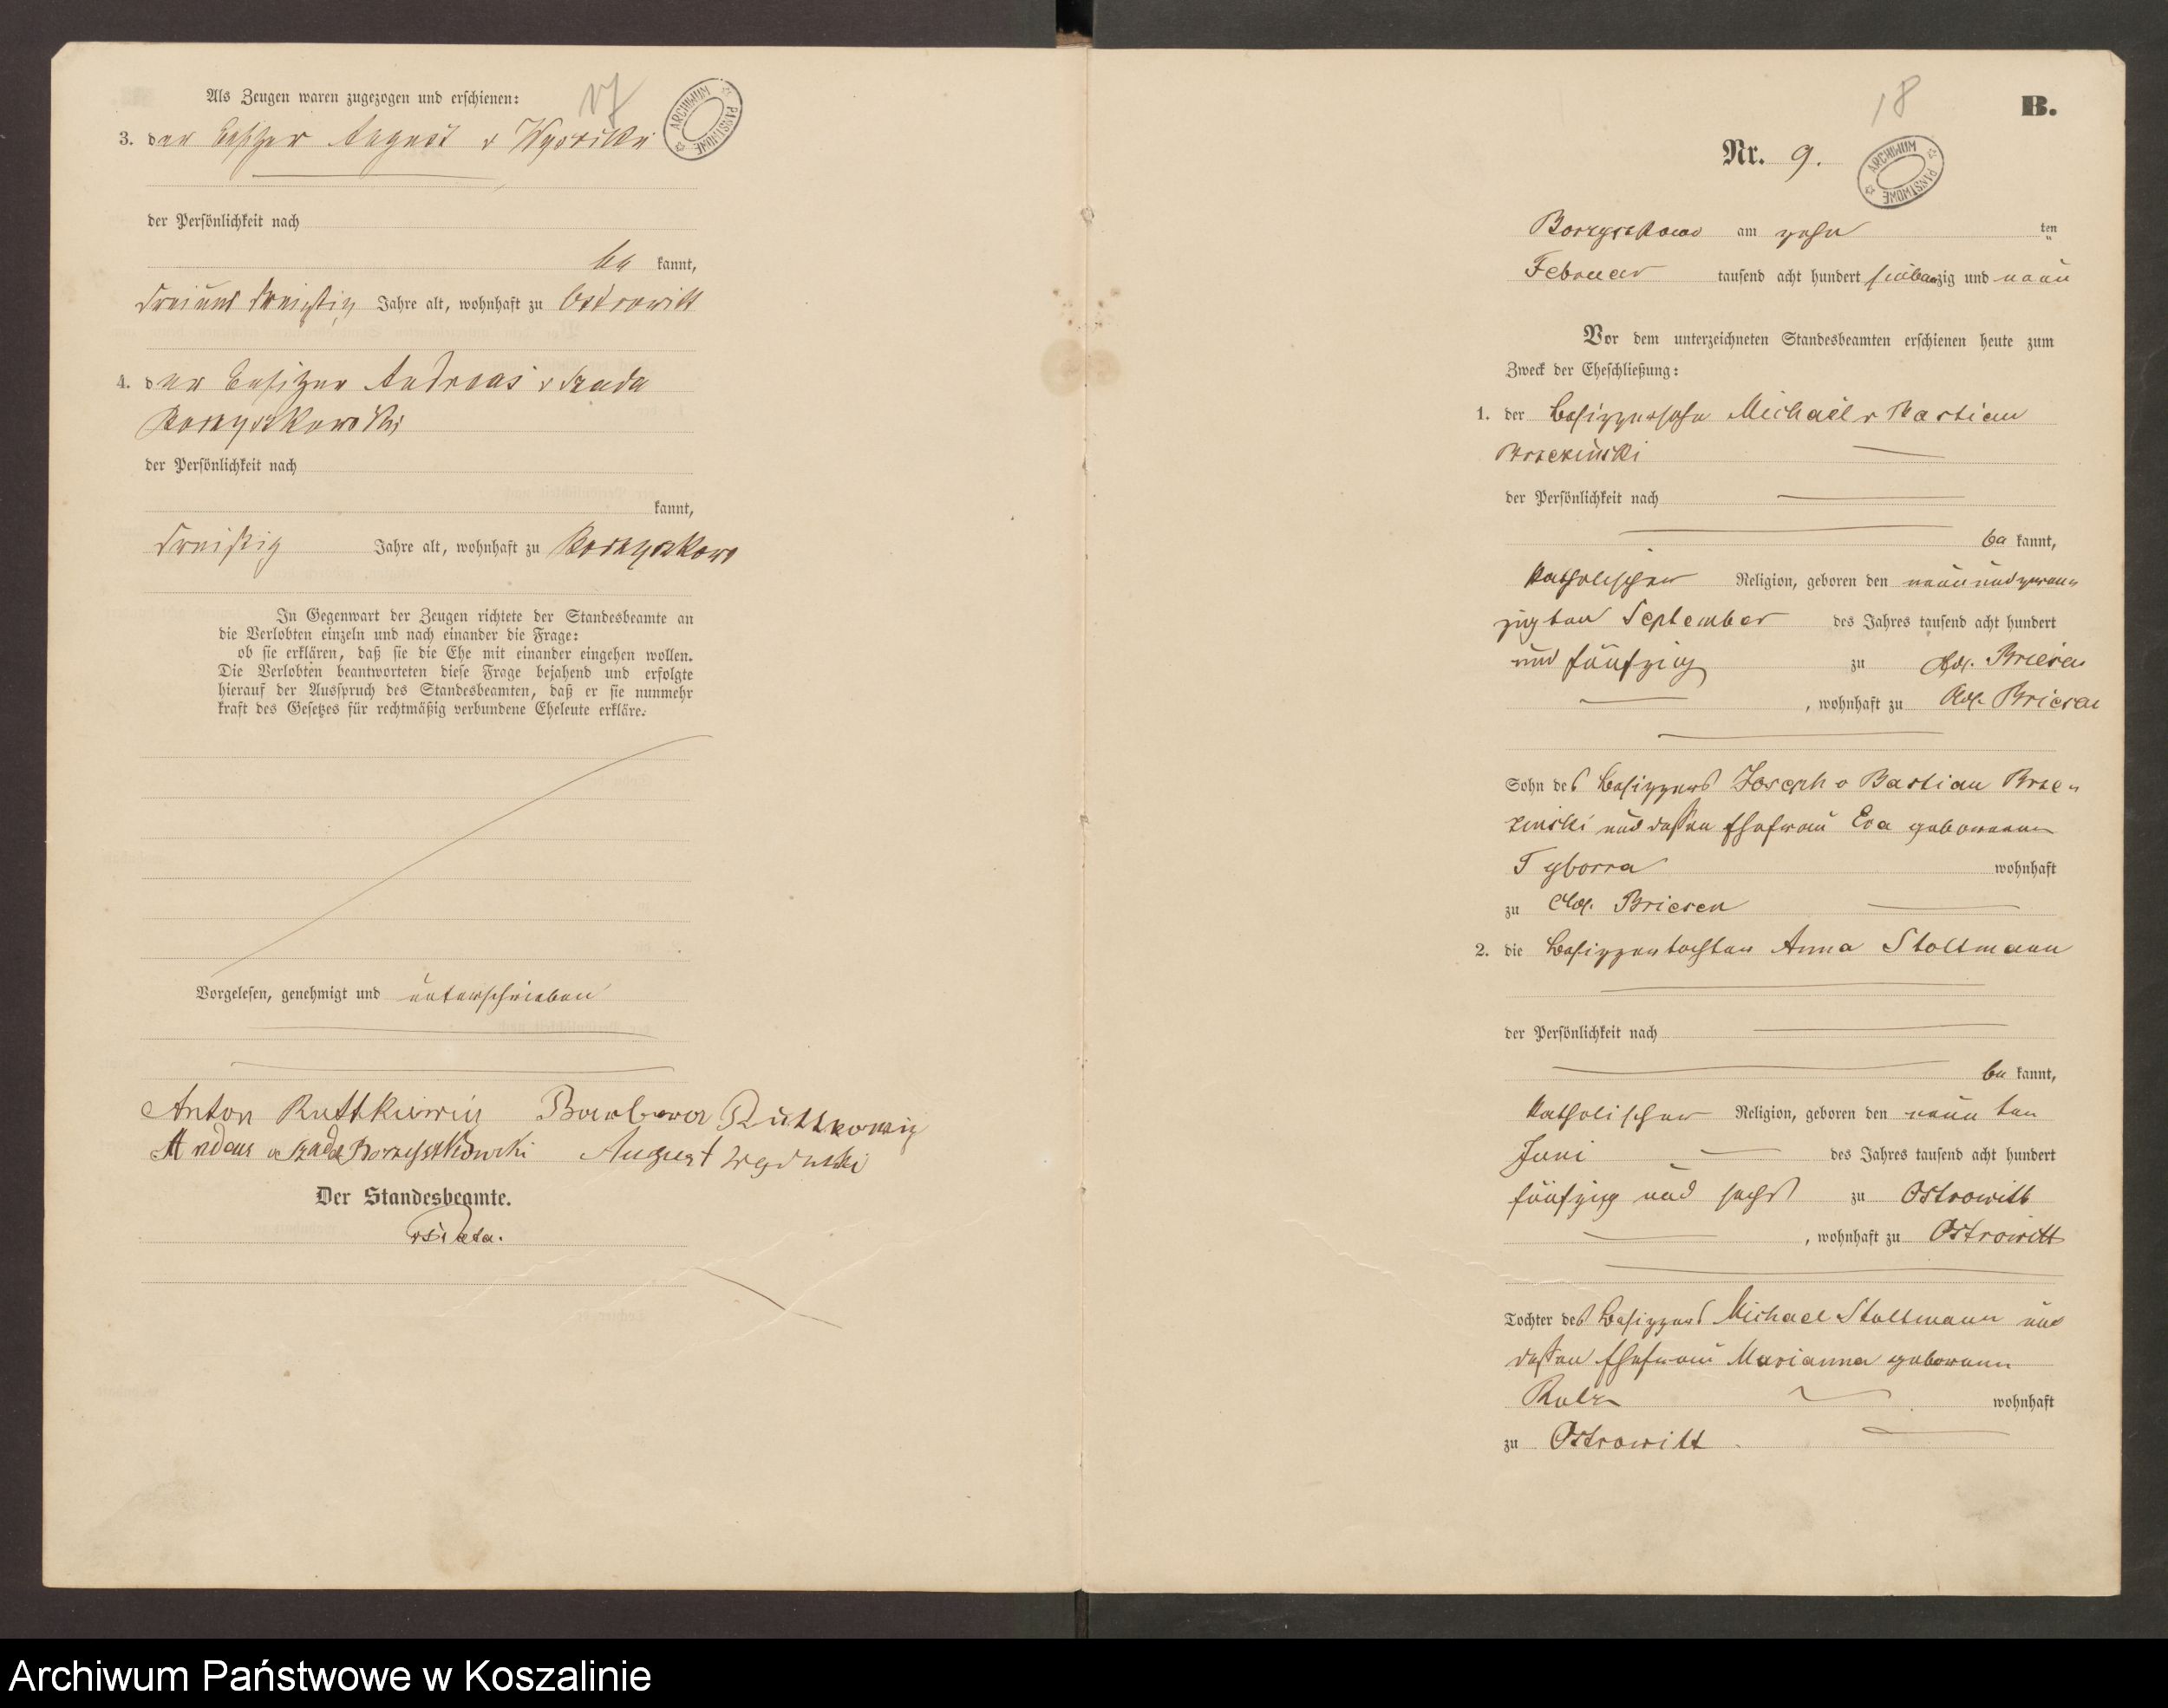 17
Als Zeugen waren zugezogen und erschienen:
ARCHIWUM PAŃSTWOWE
3. der Besitzer August v
der Persönlichkeit nach
be kannt,
drei und dreißig Jahre alt, wohnhaft zu Ostrowitt
4. der Besitzer Andreas v
Borzyszkowski
der Persönlichkeit nach
kannt,
dreißig Jahre alt, wohnhaft zu Borzyszkowo
In Gegenwart der Zeugen richtete der Standesbeamte an
die Verlobten einzeln und nach einander die Frage:
ob sie erklären, daß sie die Ehe mit einander eingehen wollen.
Die Verlobten beantworteten diese Frage bejahend und erfolgte
hierauf der Ausspruch des Standesbeamten, daß er sie nunmehr
kraft des Gesetzes für rechtmäßig verbundene Eheleute erkläre.
Vorgelesen, genehmigt und unterschrieben
Anton Barbara
August
Der Standesbeamte.
18
B.
Nr. 9.
ARCHIWUM PAŃSTWOWE
Borzyszkowo am zehn ten
Februar tausend acht hundert siebenzig und neun
Vor dem unterzeichneten Standesbeamten erschienen heute zum
Zweck der Eheschließung:
1. der Besitzersohn Michael v Bastian
Brzezinski
der Persönlichkeit nach
be kannt,
katholischer Religion, geboren den neun und zwan
zigten September des Jahres tausend acht hundert
und fünfzig zu Adl. Briesen
, wohnhaft zu Adl. Briesen
Sohn des Besitzers Joseph v Bastian Brze
zinski und dessen Ehefrau Eva geborenen
Tyborra wohnhaft
zu Adl. Briesen
2. die Besitzertochter Anna Stoltmann
der Persönlichkeit nach
be kannt,
katholischer Religion, geboren den neun ten
Juni des Jahres tausend acht hundert
fünfzig und sechs zu Ostrowitt
, wohnhaft zu Ostrowitt
Tochter des Besitzers Michael Stoltmann und
dessen Ehefrau Marianna geborenen
wohnhaft
zu Ostrowitt
Archiwum Państwowe w Koszalinie